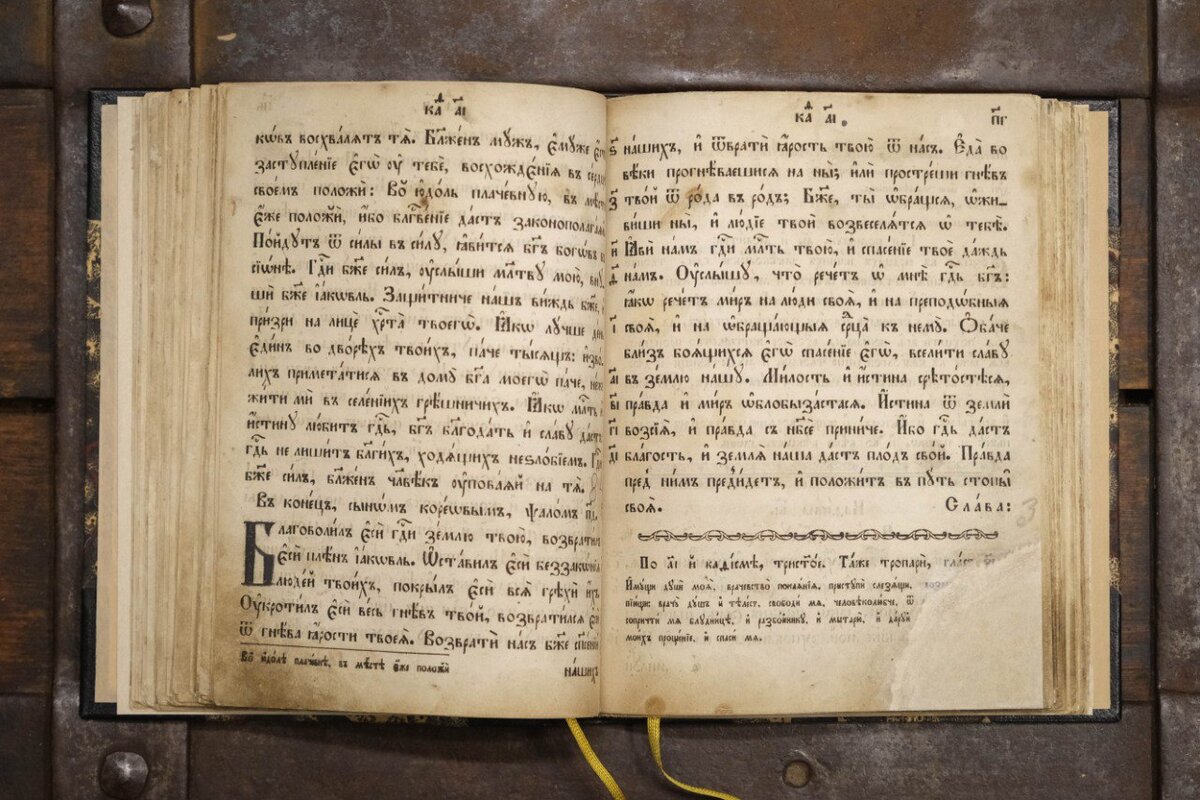 ка҃ а҃і
кѡвъ восхвалятъ тѧ̀. Бл҃же́нъ мꙋ́жъ, є҆мꙋ́же є҆́сть
застꙋпле́нїе є҆гѡ̀ ᲂу҆ тебє̀, восхождє́нїѧ въ
свое́мъ положѝ: Во ю҆до́ль плаче́внꙋю, въ мѣ́сто
є҆́же положѝ, и҆́бо блгⷭ҇ве́нїе да́стъ законополага́ѧй.
По́йдꙋтъ ѿ си́лы въ си́лꙋ, ꙗ҆ви́тсѧ бг҃ъ богѡ́въ въ
сїѡ́нѣ. Гдⷭ҇и бж҃е си́лъ, ᲂу҆слы́ши мл҃твꙋ мою̀, внꙋ
шѝ бж҃е і҆а́кѡвль. Защи́тниче на́шъ ви́ждь бж҃е,
при́зри на лицѐ хрⷭ҇та̀ твоегѡ̀. Ꙗ҆́кѡ лꙋ́чше де́нь
є҆ди́нъ во дво́рѣхъ твои́хъ, па́че ты́сѧщъ: и҆зво
ли́хъ примета́тисѧ въ домꙋ̀ бг҃а моегѡ̀ па́че, не́же
жи́ти мѝ въ селе́нїихъ грѣ́шничихъ. Ꙗ҆́кѡ млⷭ҇ть и҆
и҆́стинꙋ лю́битъ гдⷭ҇ь, бг҃ъ бл҃года́ть и҆ сла́вꙋ да́стъ
гдⷭ҇ь не лиши́тъ бл҃ги́хъ, ходѧ́щихъ неѕло́бїемъ. Гдⷭ҇и
бж҃е си́лъ, бл҃же́нъ чл҃вѣ́къ ᲂу҆пова́ѧй на тѧ̀.
Въ коне́цъ, сынѡ́мъ коре́ѡвымъ, ѱало́мъ п҃д.
Благоволи́лъ є҆сѝ гдⷭ҇и зе́млю твою̀, возврати́лъ
є҆сѝ плѣ́нъ і҆а́кѡвль. Ѡ҆ста́вилъ є҆сѝ беззакѡ́нїѧ
люде́й твои́хъ, покры́лъ є҆сѝ всѧ̀ грѣхѝ и҆́хъ
Оу҆кроти́лъ є҆сѝ ве́сь гнѣ́въ тво́й, возврати́лсѧ є҆сѝ
ѿ гнѣ́ва ꙗ҆́рости твоеѧ̀. Возвратѝ на́съ бж҃е спⷭ҇е́нїй
Во ю҆до́лѣ плаче́внѣ, въ мѣ́стѣ є҆́же положѝ
на́шихъ
ка҃ а҃і. п҃г
ѕ҃ на́шихъ, и҆ ѿвратѝ ꙗ҆́рость твою̀ ѿ на́съ. Є҆да̀ во
вѣ́ки прогнѣ́ваешисѧ на ны̀; и҆лѝ простре́ши гнѣ́въ
з҃ тво́й ѿ ро́да въ ро́дъ; Бж҃е, ты̀ ѡ҆бра́щсѧ, ѡ҆жи-
ви́ши ны̀, и҆ лю́дїе твоѝ возвеселѧ́тсѧ ѡ҆ тебѣ̀.
и҃ Ꙗ҆вѝ на́мъ гдⷭ҇и млⷭ҇ть твою̀, и҆ спасе́нїе твоѐ да́ждь
на́мъ. Оу҆слы́шꙋ, что̀ рече́тъ ѡ҆ мнѣ̀ гдⷭ҇ь бг҃ъ:
ꙗ҆́кѡ рече́тъ ми́ръ на лю́ди своѧ̀, и҆ на преподѡ́бныѧ
і҃ своѧ̀, и҆ на ѡ҆браща́ющыѧ срⷣца̀ къ немꙋ̀. Ѻ҆ба́че
бли́зъ боѧ́щихсѧ є҆гѡ̀ спасе́нїе є҆гѡ̀, всели́ти сла́вꙋ
а҃і въ зе́млю на́шꙋ. Ми́лость и҆ и҆́стина срѣто́стесѧ,
в҃і пра́вда и҆ ми́ръ ѡ҆блобыза́стасѧ. И҆́стина ѿ землѝ
г҃і возсїѧ̀, и҆ пра́вда съ нб҃сѐ прини́че. И҆́бо гдⷭ҇ь да́стъ
д҃і бла́гость, и҆ землѧ̀ на́ша да́стъ пло́дъ сво́й. Пра́вда
пред̾ ни́мъ пред̾и́детъ, и҆ положи́тъ въ пꙋ́ть стопы̀
своѧ̀. Сла́ва:
3
По а҃і й каѳі́смѣ, трист҃о́е. Та́же тропарѝ, гла́съ
И҆мꙋ́щи дꙋшѐ моѧ̀, враче́вство покаѧ́нїѧ, пристꙋпѝ слезѧ́щи,
пїю́щи: врачꙋ̀ дꙋ́шъ и҆ тѣле́съ, свободѝ мѧ, человѣколю́бче, ѿ
сопричтѝ мѧ блꙋдни́цѣ, и҆ разбо́йникꙋ, и҆ мытарю̀, и҆ да́рꙋй
мои́хъ проще́нїе, и҆ спасѝ мѧ.